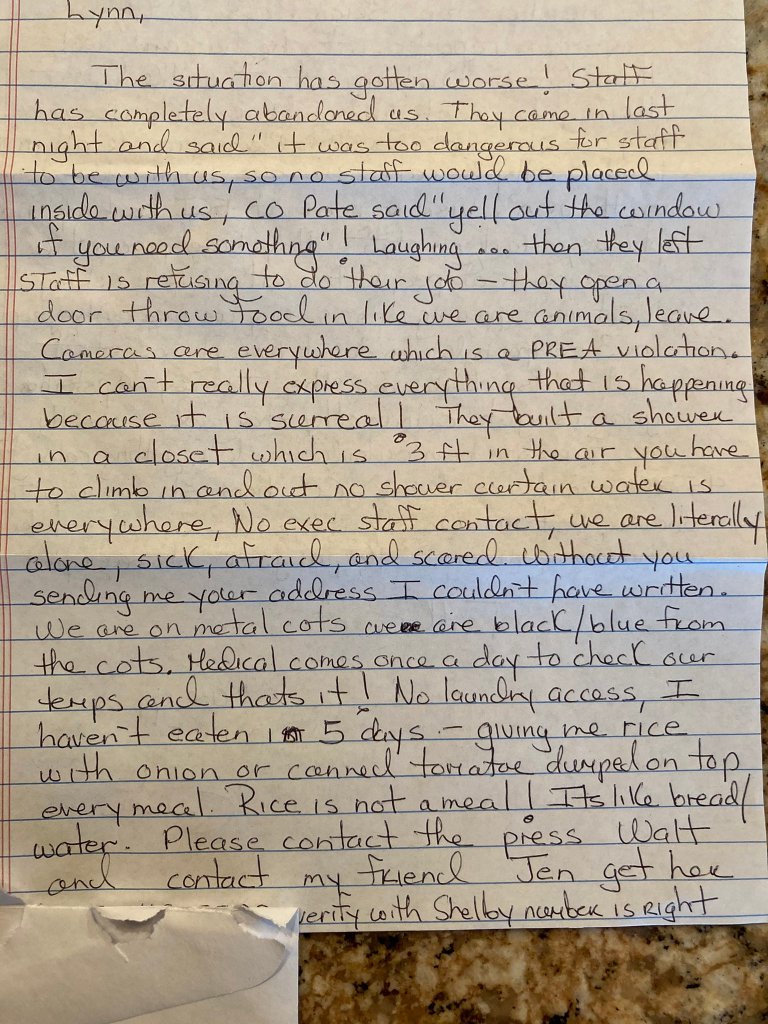 Lynn,
The situation has gotten worse! Staff
has completely abandoned us. They came in last
night and said" it was too dangerous for staff
to be with us, so no staff would be placed
inside with us, CO Pate said "yell out the window
if you need somethng"! Laughing ... then they left
Staff is refusing to do their job - they open a
door throw food in like we are animals, leave.
Cameras are everywhere which is a PREA violation.
I can't really express everything that is happening
because it is surreal! They built a shower
in a closet which is 3 ft in the air you have
to climb in and out no shower curtain water is
everywhere, No exec staff contact, we are literally
alone, sick, afraid, and scared. Without you
sending me your address I couldn't have written.
We are on metal cots we are black/blue from
the cots. Medical comes once a day to check our
temps and thats it! No laundry access, I
haven't eaten in 5 days - giving me rice
with onion or canned tomatoe dumped on top
every meal. Rice is not a meal! Its like bread/
water. Please contact the press Walt
and contact my friend Jen get her
verify with Shelby number is right